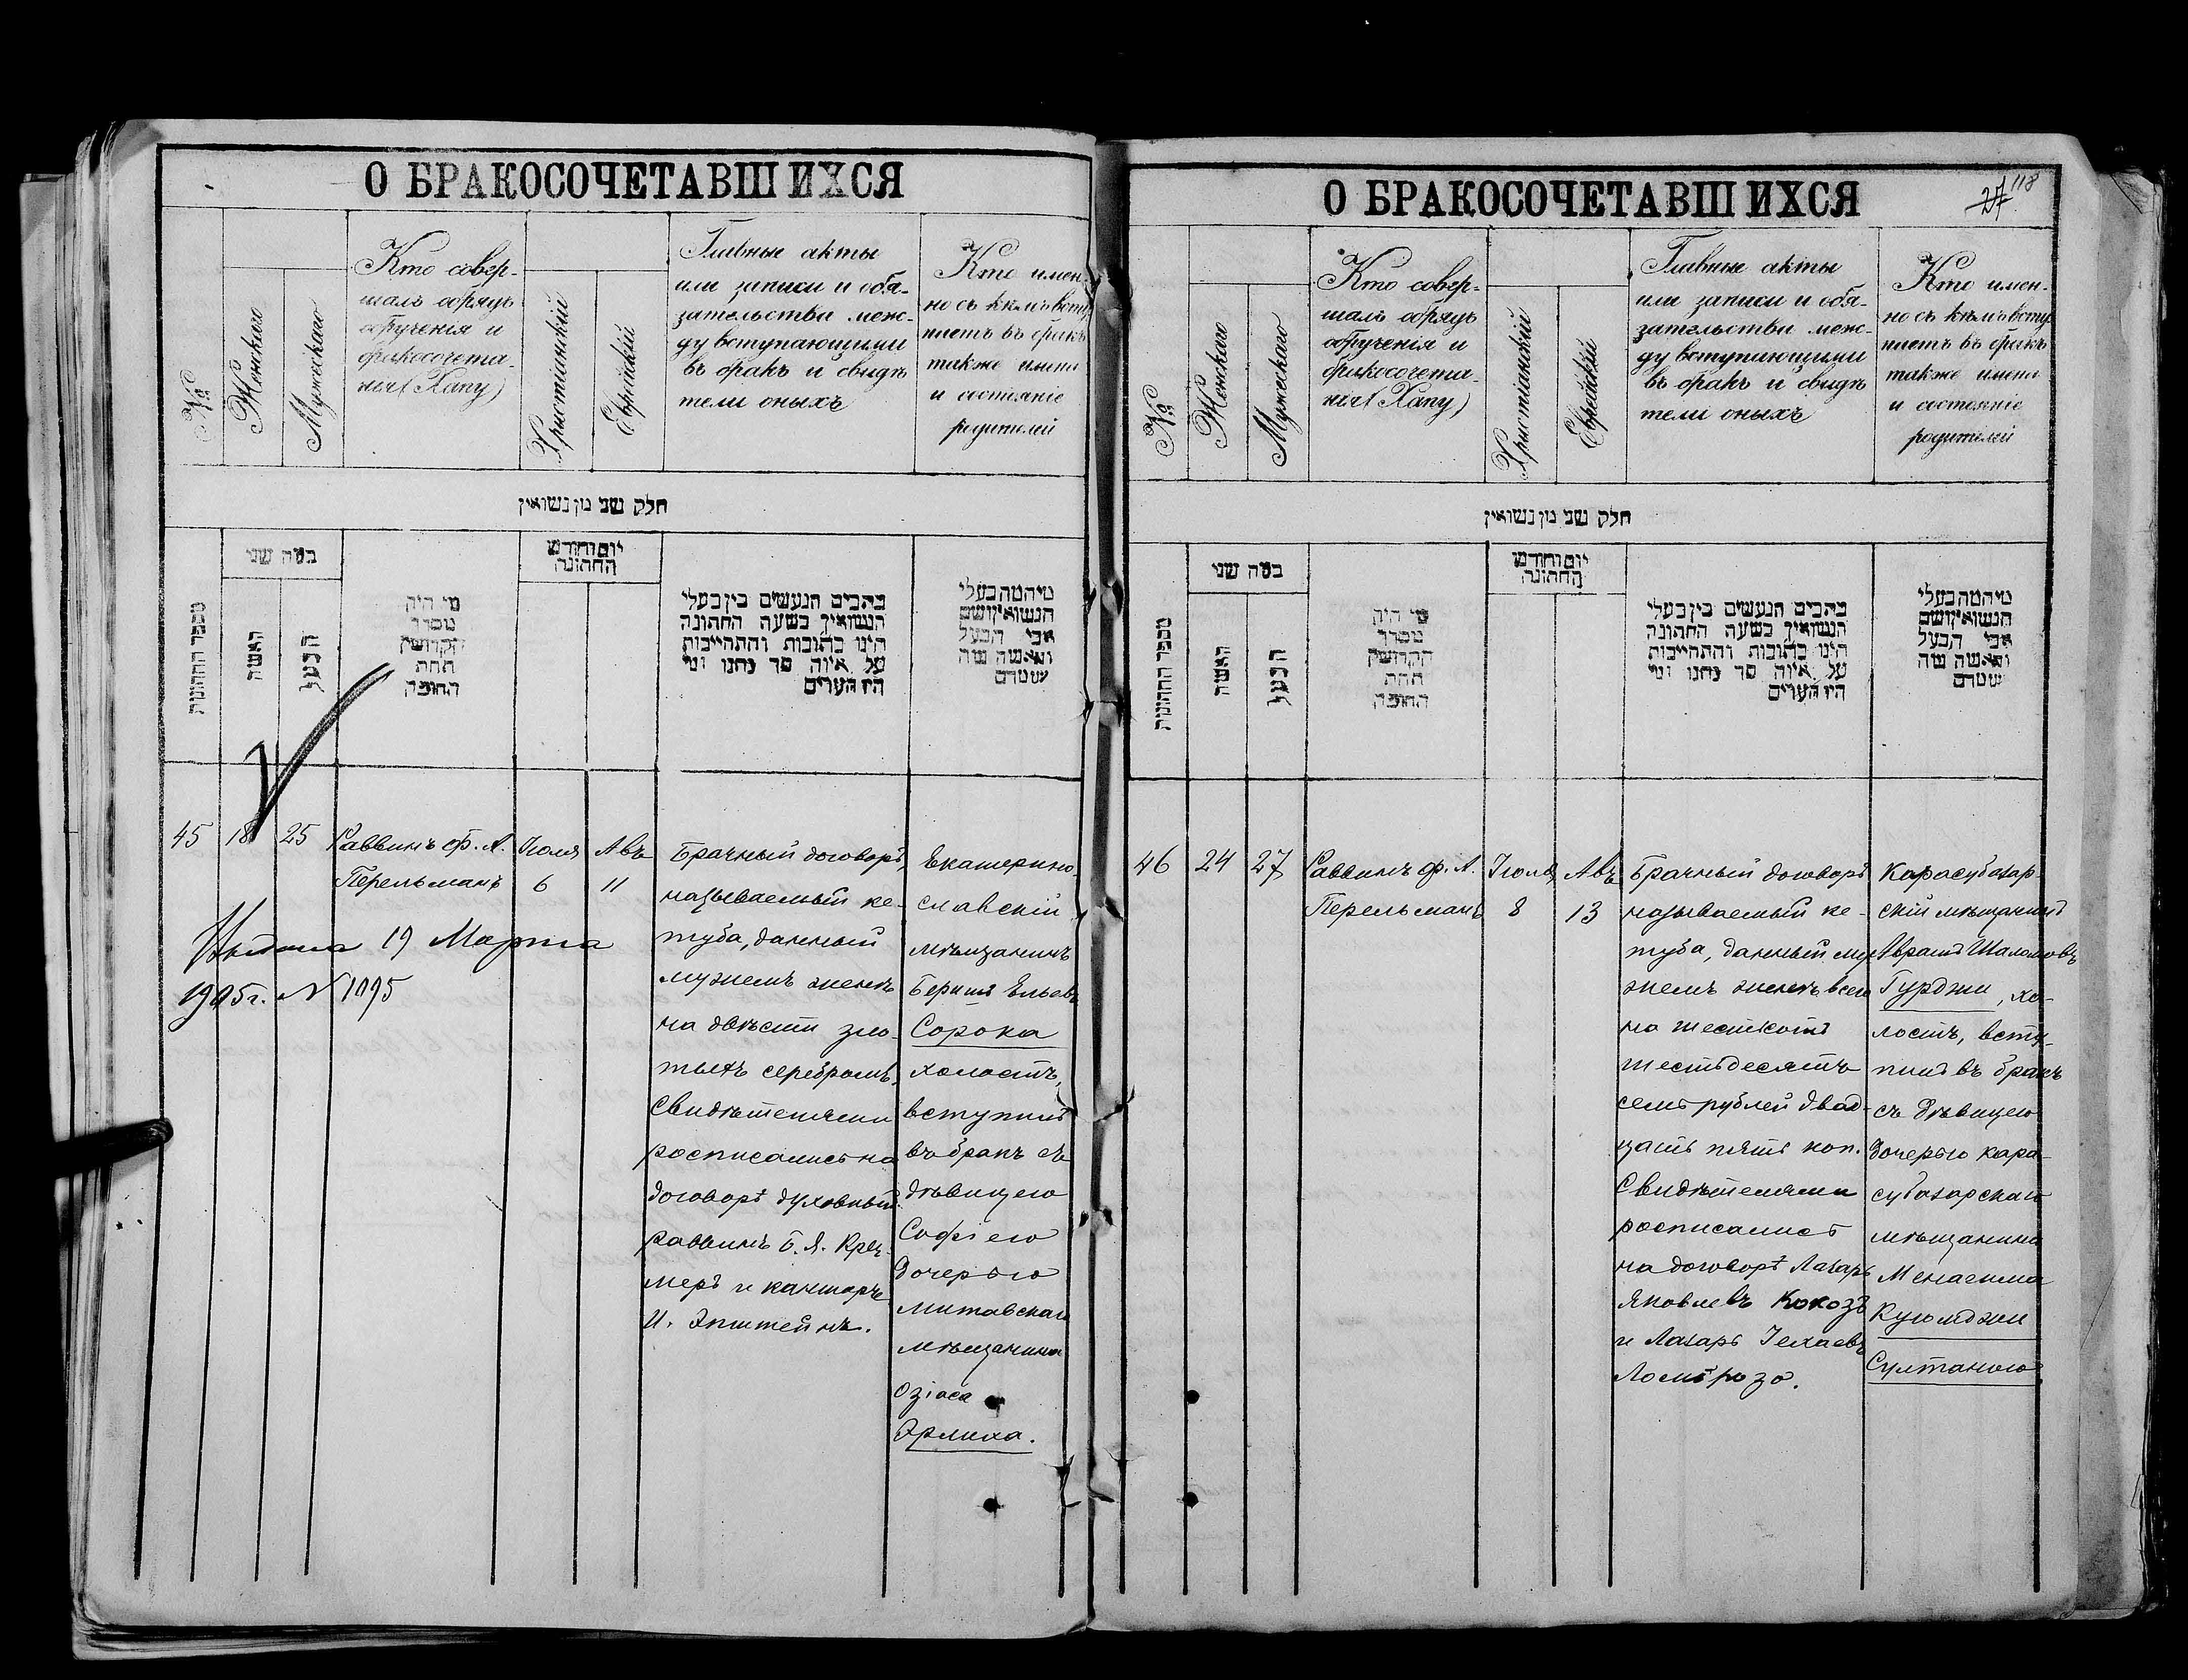 О БРАКОСОЧЕТАВШИХСЯ
№
Женскаго
Мужескаго
Кто совер-
шалъ обрядъ
обрученія и
бракосочета-
нія (Хапу)
Христіанскій
Еврейскій
Главные акты
или записи и обя-
зательства меж-
ду вступающими
въ бракъ и свидѣ
тели оныхъ
Кто имен-
но съ кѣмъ всту
паетъ въ бракъ
также имена
и состояніе
родителей
חלק שני מן נשואין
מספר החתונות
כמה שני
האשה
הבעל
מי היה
מסדר
הקדושין
תחת
החופה
יום וחודש
החתונה
כתבים הנעשים בין בעלי
הנשואין בשעה החתונה
היינו כתובות והתחייבות
על איזה סך נתנו ומי
היו העדים
45
18
25
Раввинъ Ф. А.
Перельманъ
Іюля
6
Авъ
11
Брачный договоръ,
называемый ке-
туба, данный
мужемъ женѣ
на двѣсти зло-
тыхъ серебромъ.
Свидѣтелями
росписались на
договорѣ духовный
раввинъ Б. Я. Крез-
меръ и канторъ
И. Эпштейнъ.
Екатерино-
славскій
мѣщанинъ
Беріилъ Ельевъ
Сорока
холостъ,
вступилъ
въ бракъ съ
дѣвицею
Софіею
дочерью
митавскаго
мѣщанина
Озіаса
Эрлиха.
Выдана 19 Марта
1905г. № 1095
О БРАКОСОЧЕТАВШИХСЯ
27 118
№
Женскаго
Мужескаго
Кто совер-
шалъ обрядъ
обрученія и
бракосочета-
нія (Хапу)
Христіанскій
Еврейскій
Главные акты
или записи и обя-
зательства меж-
ду вступающими
въ бракъ и свидѣ
тели оныхъ
Кто имен-
но съ кѣмъ всту
паетъ въ бракъ
также имена
и состояніе
родителей
חלק שני מן נשואין
מספר החתונות
כמה שני
האשה
הבעל
מי היה
מסדר
הקדושין
תחת
החופה
יום וחודש
החתונה
כתבים הנעשים בין בעלי
הנשואין בשעה החתונה
היינו כתובות והתחייבות
על איזה סך נתנו ומי
היו העדים
46
24
27
Раввинъ Ф. А.
Перельманъ
Іюля
8
Авъ
13
Брачный договоръ
называемый ке-
туба, данный му
жемъ женѣ всего
на шестьсотъ
шестьдесятъ
семь рублей двад-
цать пять коп.
Свидѣтелями
росписались
на договорѣ Лазарь
Яковлевъ Кокозъ
и Лазарь Іехаевъ
Ломброзо.
Карасубазар-
скій мѣщанинъ
Аврамъ Шаломовъ
Гурджи, хо-
лостъ, всту-
пилъ въ бракъ
съ дѣвицею
дочерью кара-
субазарскаго
мѣщанина
Менагима
Куюмджи
Султаною